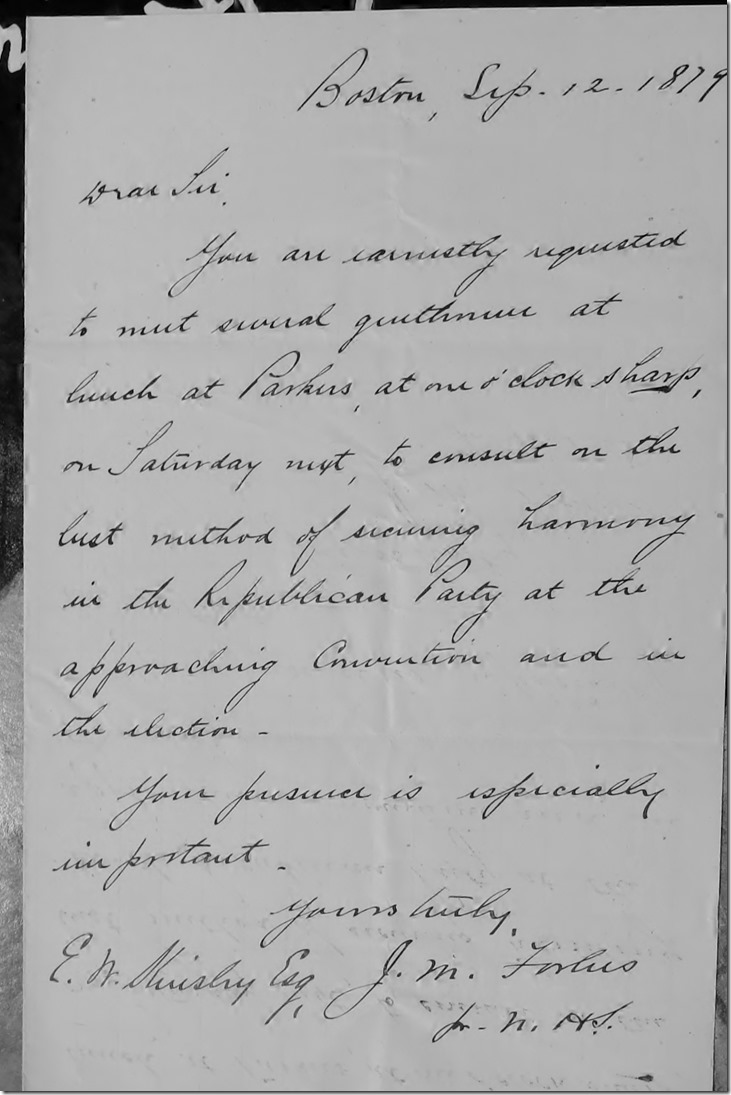 Boston, Sep. 12. 1879
Dear Sir,
You are earnestly requested
to meet several gentlemen at
lunch at Parkers, at one o'clock sharp,
on Saturday next, to consult on the
best method of securing harmony
in the Republican Party at the
approaching Convention and in
the election -
Your presence is especially
important -
Yours truly,
E. W. Kinsley Esq, J. M. Forbes
pr. N. H. S.